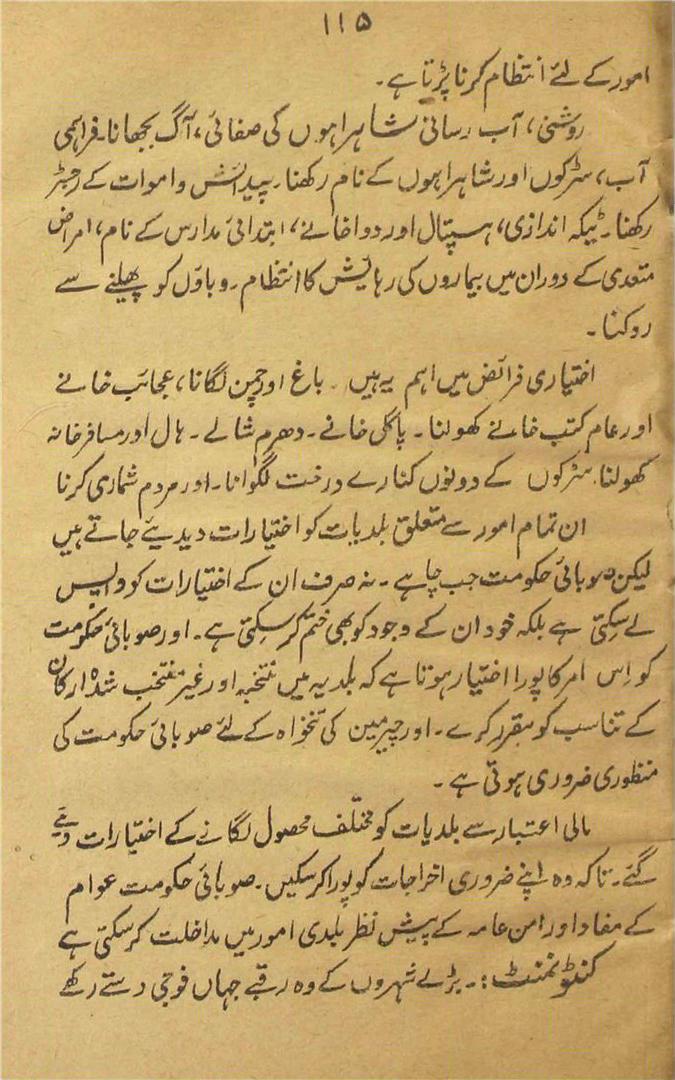 ۱۱۵
امور کے لئے انتظام کرنا پڑتا ہے۔
روشنی، آب رسانی شاہراہوں کی صفائی، آگ بجھانا۔ فراہمی
آب، سڑکوں اور شاہراہوں کے نام رکھنا۔ پیدائش و اموات کے رجسٹر
رکھنا۔ ٹیکہ اندازی، ہسپتال اور دواخانے، ابتدائی مدارس کے نام، امراض
متعدی کے دوران میں بیماروں کی رہائیش کا انتظام۔ وباؤں کو پھیلنے سے
روکنا۔
اختیاری فرائض میں اہم یہ ہیں۔ باغ اور چمن لگانا، عجائب خانے
اور عام کتب خانے کھولنا۔ پاگل خانے۔ دھرم شالے۔ ہال اور مسافر خانہ
کھولنا۔ سڑکوں کے دونوں کنارے درخت لگوانا۔ اور مردم شماری کرنا
ان تمام امور سے متعلق بلدیات کو اختیارات دیدیئے جاتے ہیں
لیکن صوبائی حکومت جب چاہے۔ نہ صرف ان کے اختیارات کو واپس
لے سکتی ہے بلکہ خود ان کے وجود کو بھی ختم کر سکتی ہے۔ اور صوبائی حکومت
کو اِس امر کا پورا اختیار ہوتا ہے کہ بلدیہ میں منتخبہ اور غیر منتخب شدہ ارکان
کے تناسب کو مقرر کرے۔ اور چیرمین کی تنخواہ کے لئے صوبائی حکومت کی
منظوری ضروری ہوتی ہے۔
مالی اعتبار سے بلدیات کو مختلف محصول لگانے کے اختیارات دیئے
گئے۔ تاکہ وہ اپنے ضروری اخراجات کو پورا کر سکیں۔ صوبائی حکومت عوام
کے مفاد اور امن عامہ کے پیش نظر بلدی امور میں مداخلت کر سکتی ہے
کنٹونمنٹ:۔ بڑے شہروں کے وہ رقبے جہاں فوجی دستے رکھے